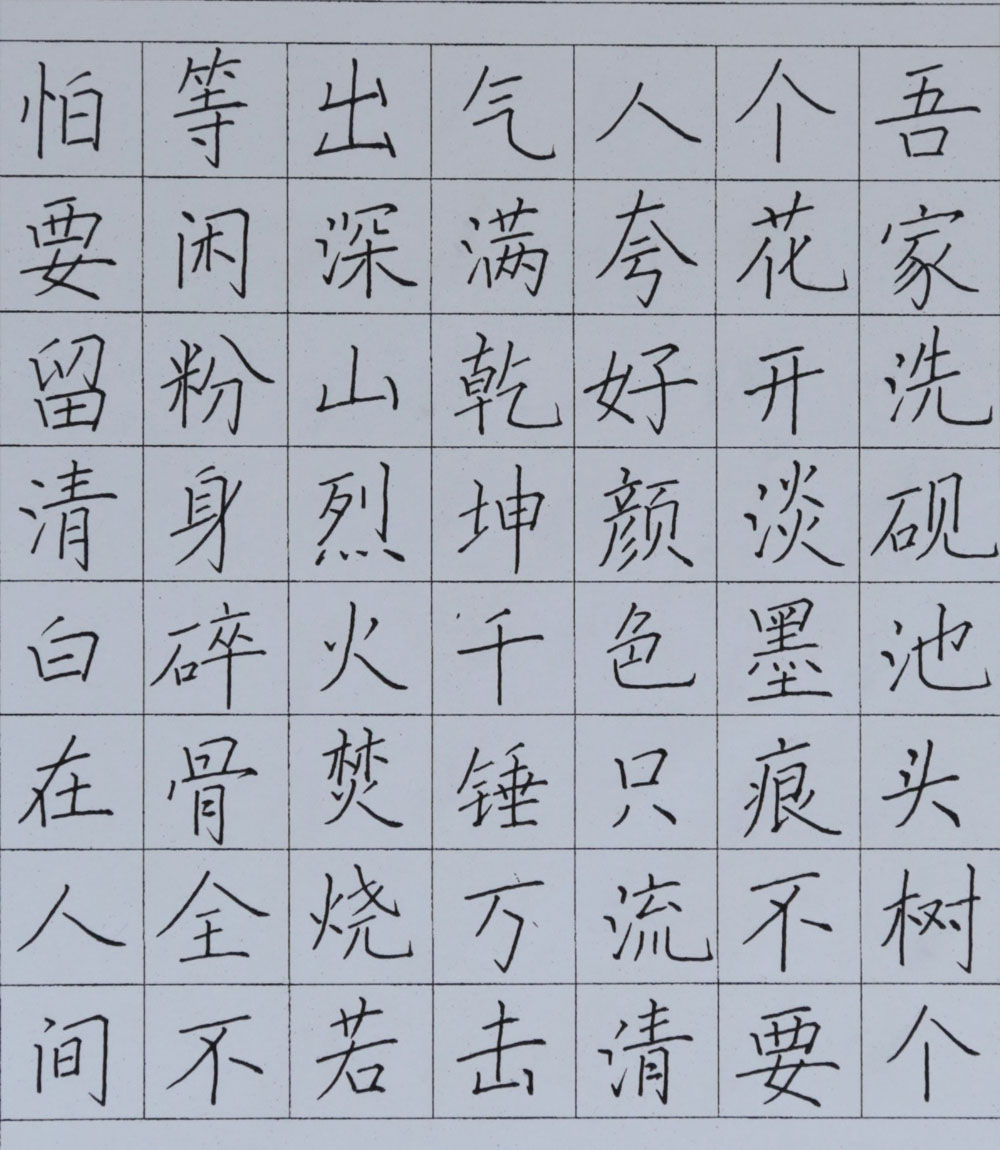 吾家洗砚池头树个
个花开淡墨痕不要
人夸好颜色只流清
气满乾坤千锤万击
出深山烈火焚烧若
等闲粉身碎骨全不
怕要留清白在人间